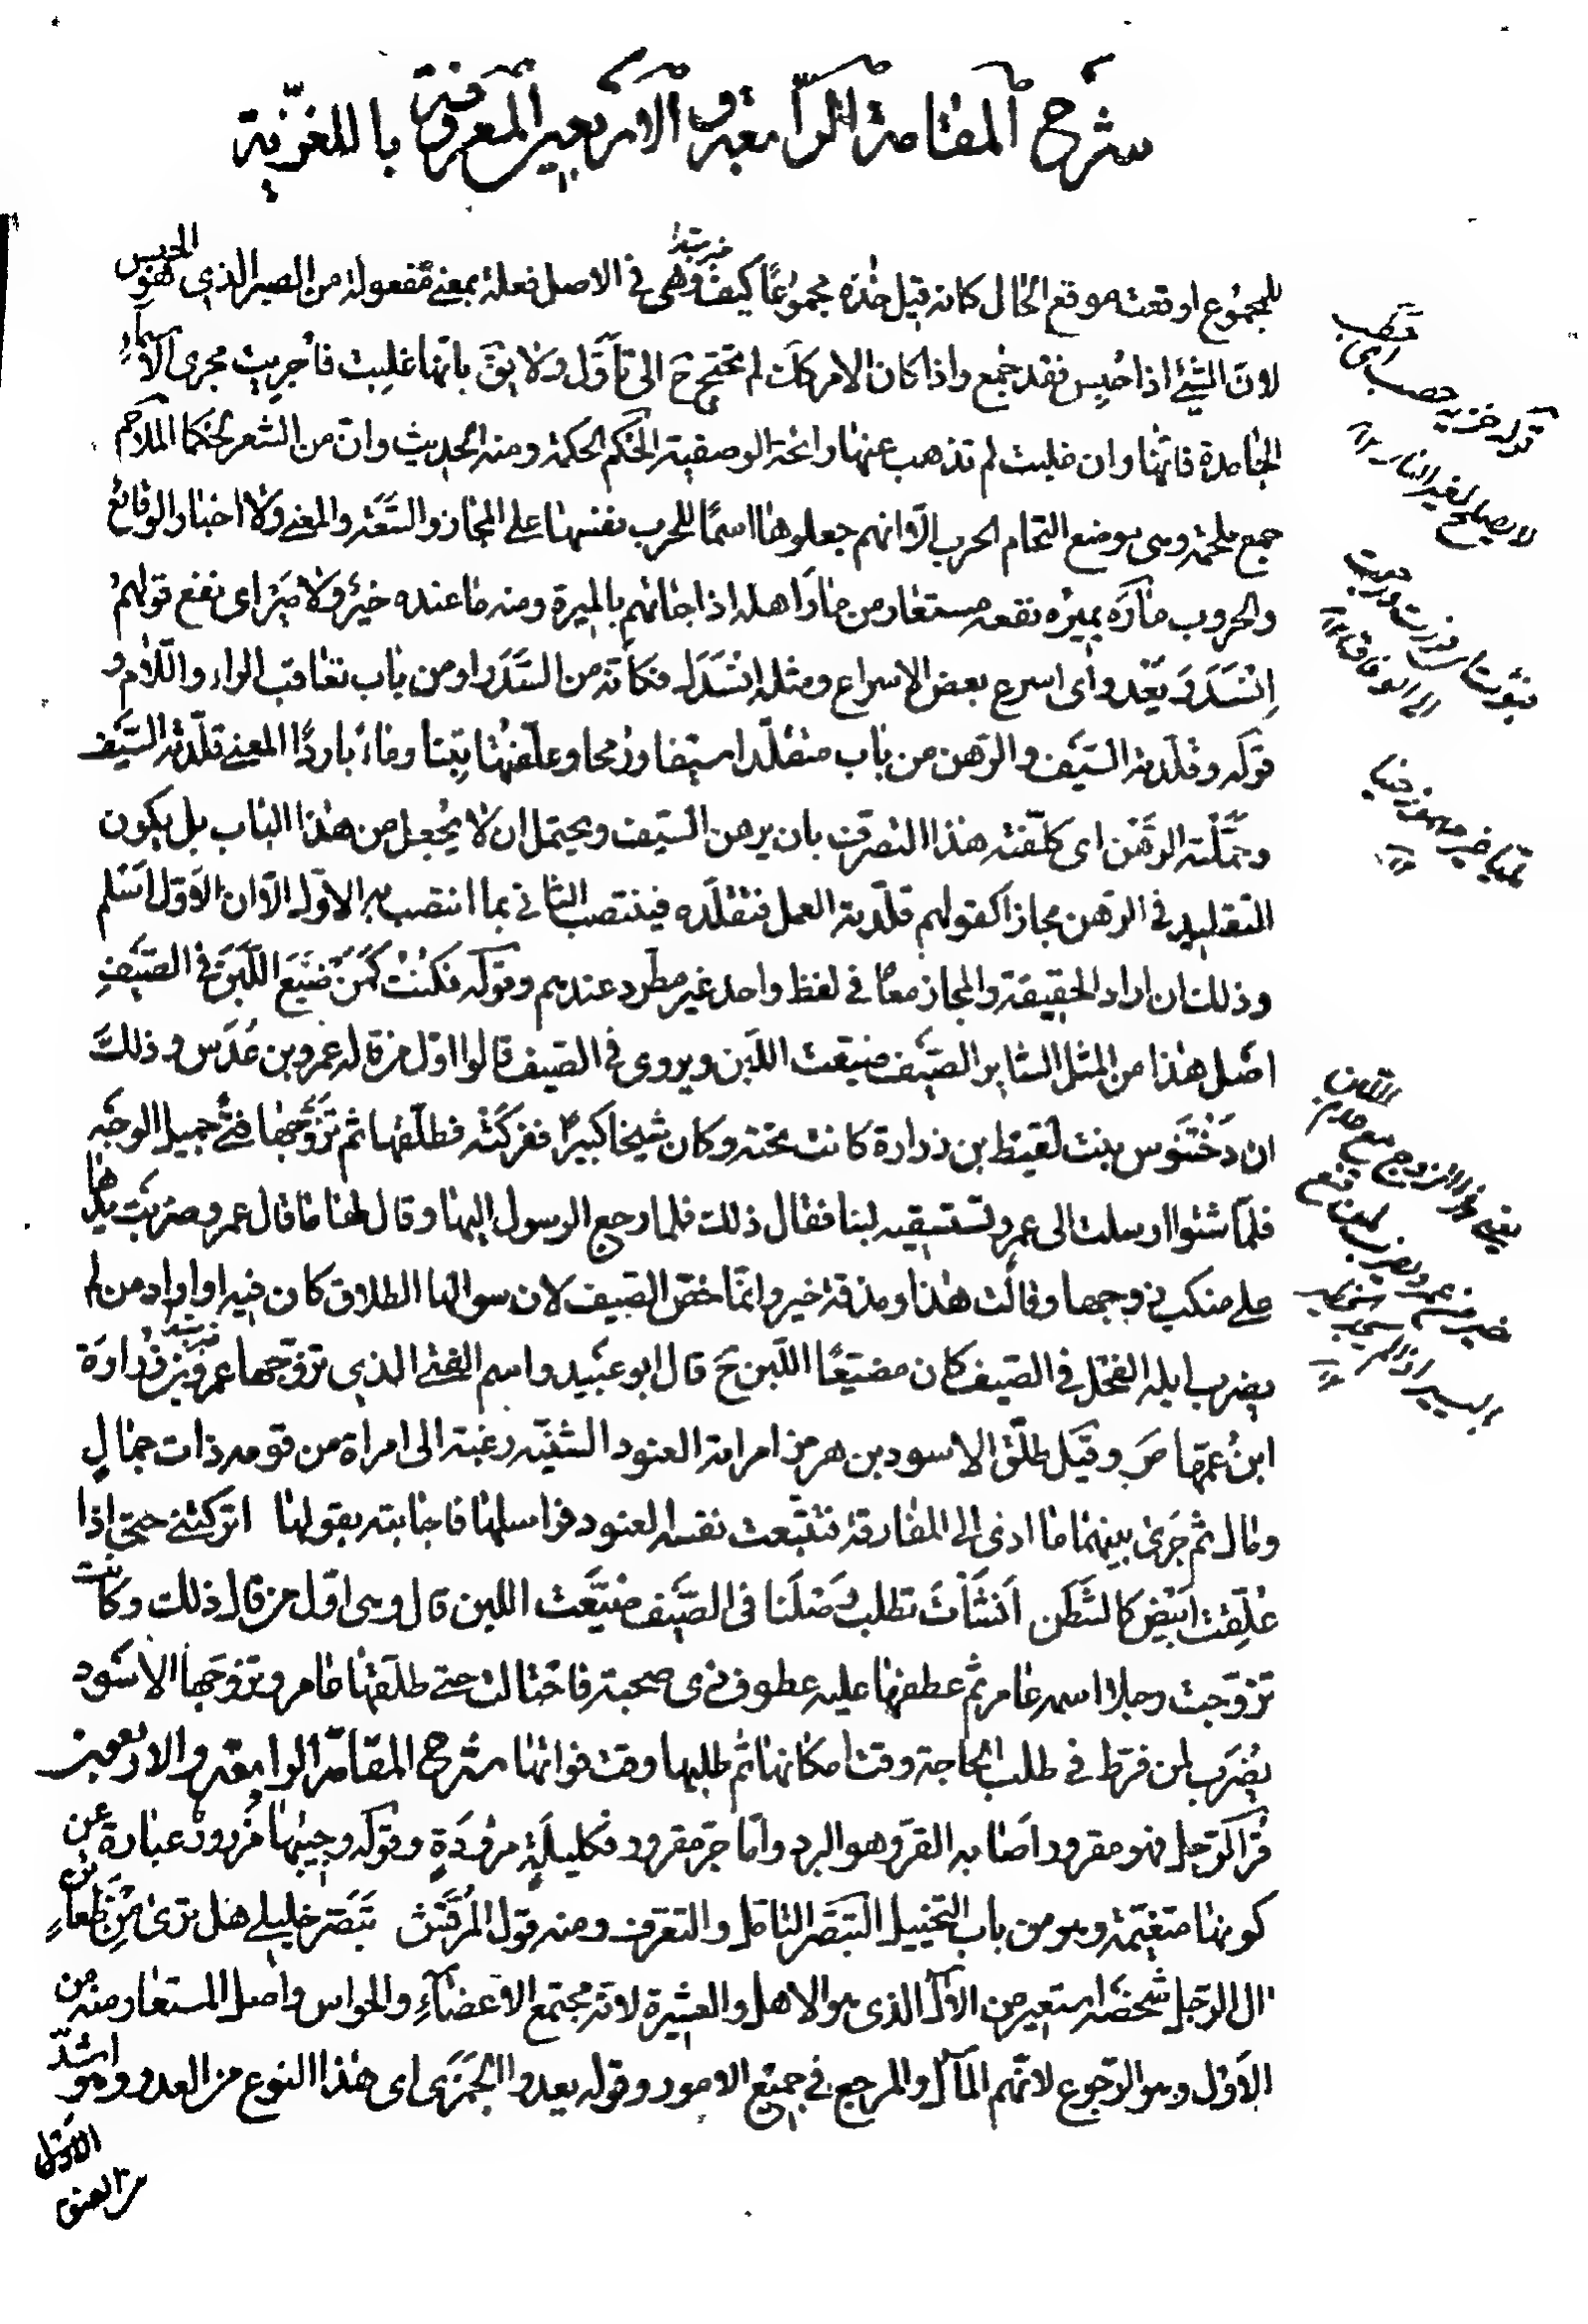 شرح المقامة الرابعة والاربعين المعروفة باللغزية
للمجموع اوقعت موقع الحال كانه قيل خذه مجموعا كيف وهى فى الاصل فعلة بمعنى مفعولة من الصبر الذى هو الحبس
لان الشئ اذا حبس فقد جمع واذا كان الامر كذلك لم يحتج ح الى تأول ولا يق بانها غلبت فاجريت مجرى الاسماء
الجامدة فانها وان غلبت لم تذهب عنها رائحة الوصفية الحكم الحكمة ومنه الحديث وان من الشعر لحكما الملاحم
جمع ملحمة وهى موضع التحام الحرب الا انهم جعلوها اسما للحرب نفسها على المجاز والسعة والمعنى ولا اخبار الوقائع
والحروب ماره يميره نفعه مستعار من مار اهله اذا جاءهم بالميرة ومنه ما عنده خير ولا مير اى نفع قولهم
انسدر يعدو اى اسرع بعض الاسراع ومثله انسدل فكأنه من السدر او من باب تعاقب الراء واللام و
قوله وقلدته السيف والرهن من باب متقلدا سيفا ورمحا وعلفتها تبنا وماء باردا المعنى قلدته السيف
وحملته الرهن اى كلفته هذا التصرف بان يرهن السيف ويحتمل ان لا يجعل من هذا الباب بل يكون
التقليد فى الرهن مجازا كقولهم قلدته العمل فتقلده فينتصب الثانى بما انتصب به الاول الا ان الاول اسلم
وذلك ان اراد الحقيقة والمجاز معا فى لفظ واحد غير مطرد عندهم وقوله فكنت كمن ضيع اللبن فى الصيف
اصل هذا من المثل السائر الصيف ضيعت اللبن ويروى فى الصيف قالوا اول من قاله عمرو بن عدس وذلك
ان دختنوس بنت لقيط بن زرارة كانت تحته وكان شيخا كبيرا ففركته فطلقها ثم تزوجها فتى جميل الوجه
فلما شتوا ارسلت الى عمرو تستسقيه لبنا فقال ذلك فلما رجع الرسول اليها وقال لها ما قال عمرو ضربت يدها
على منكب زوجها وقالت هذا ومذقة خير وانما خص الصيف لان سوالها الطلاق كان فيه او اراد من لم
يضرب ابله الفحل فى الصيف كان مضيعا اللبن ح قال ابو عبيد واسم الفتى الذى تزوجها عمرو بن زرارة
ابن عمها ص وقيل طلق الاسود بن هرمز امراته العنود الشنية رغبة الى امراة من قومه ذات جمال
ومال ثم جرى بينهما ما ادى الى المفارقة فتتبعت نفسه العنود فراسلها فاجابته بقولها اتركتنى حتى اذا
علقت ابيض كالشطن انشأت تطلب وصلنا فى الصيف ضيعت اللبن قال وهى اول من قال ذلك وكانت
تزوجت رجلا اسمه عامر ثم عطفها عليه عطوف ذى صحبة فاحتالت حتى طلقها عامر وتزوجها الاسود
يضرب لمن فرط فى طلب الحاجة وقت امكانها ثم طلبها وقت فواتها شرح المقامة الرابعة والاربعين
قر الرجل فهو مقرور اصابه القر وهو البرد واما جر مقرور فكليلة مزؤدة وقوله وجيبها مزرور عبارة عن
كونها متغيمة وهو من باب التخييل التبصر التامل والتعرف ومنه قول المرقش تبصر خليلى هل ترى من ظعائن
ال الرجل شخصه استعير من الال الذى هو الاهل والعشيرة لانه مجتمع الاعضاء والحواس واصل المستعار منه من
الاول وهو الرجوع لانهم المآل والمرجع فى جميع الامور وقوله يعدو الجمزى اى هذا النوع من العدو وهو اشد
من العنق